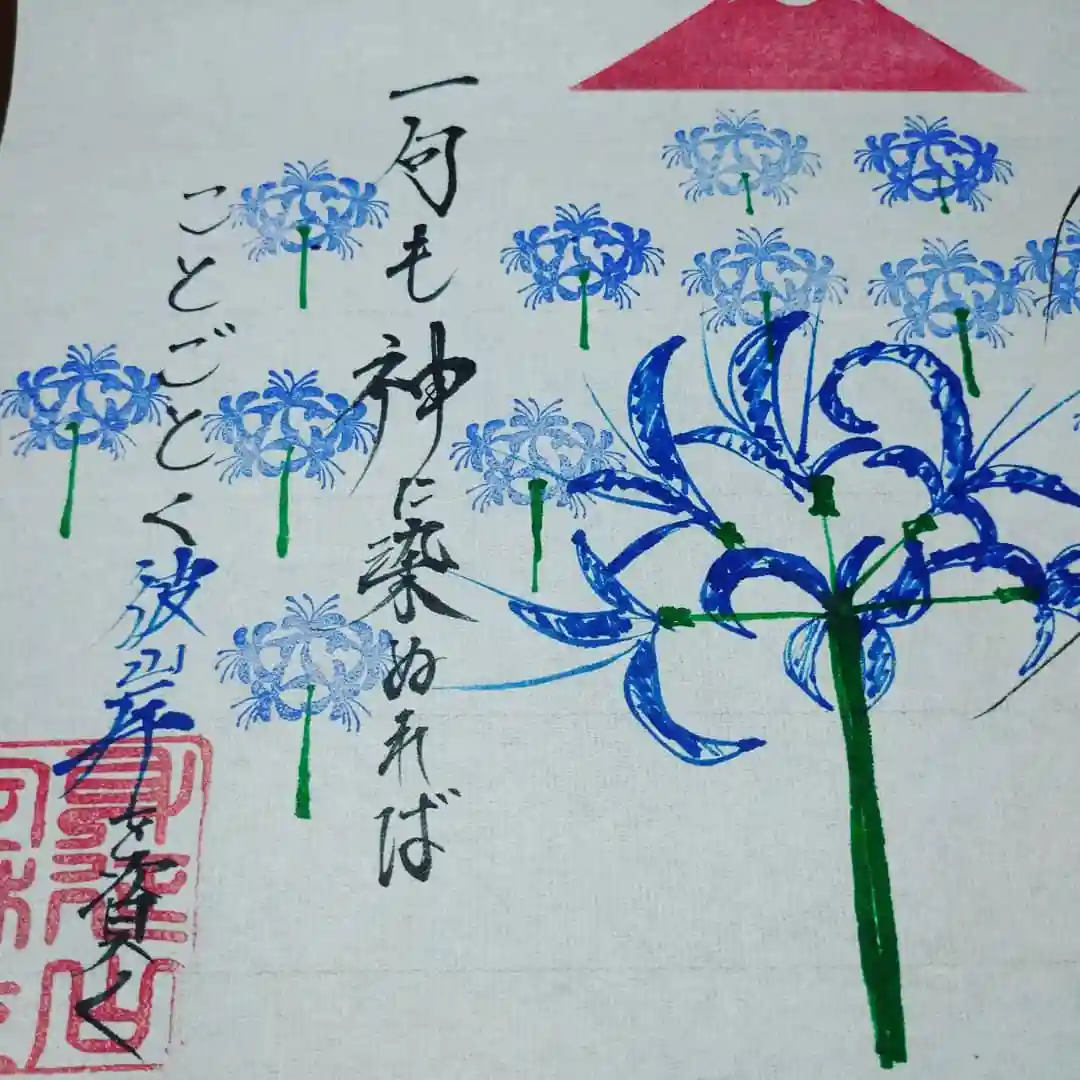 一句も神に染ぬれば
ことごとく彼岸を資く
身延山